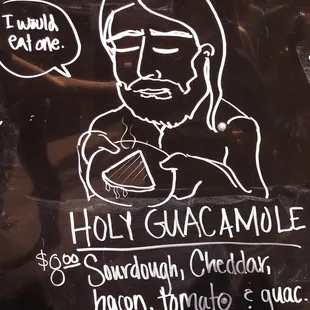 I would
eat one.
HOLY GUACAMOLE
$8.00 Sourdough, Cheddar,
bacon, tomato & guac.